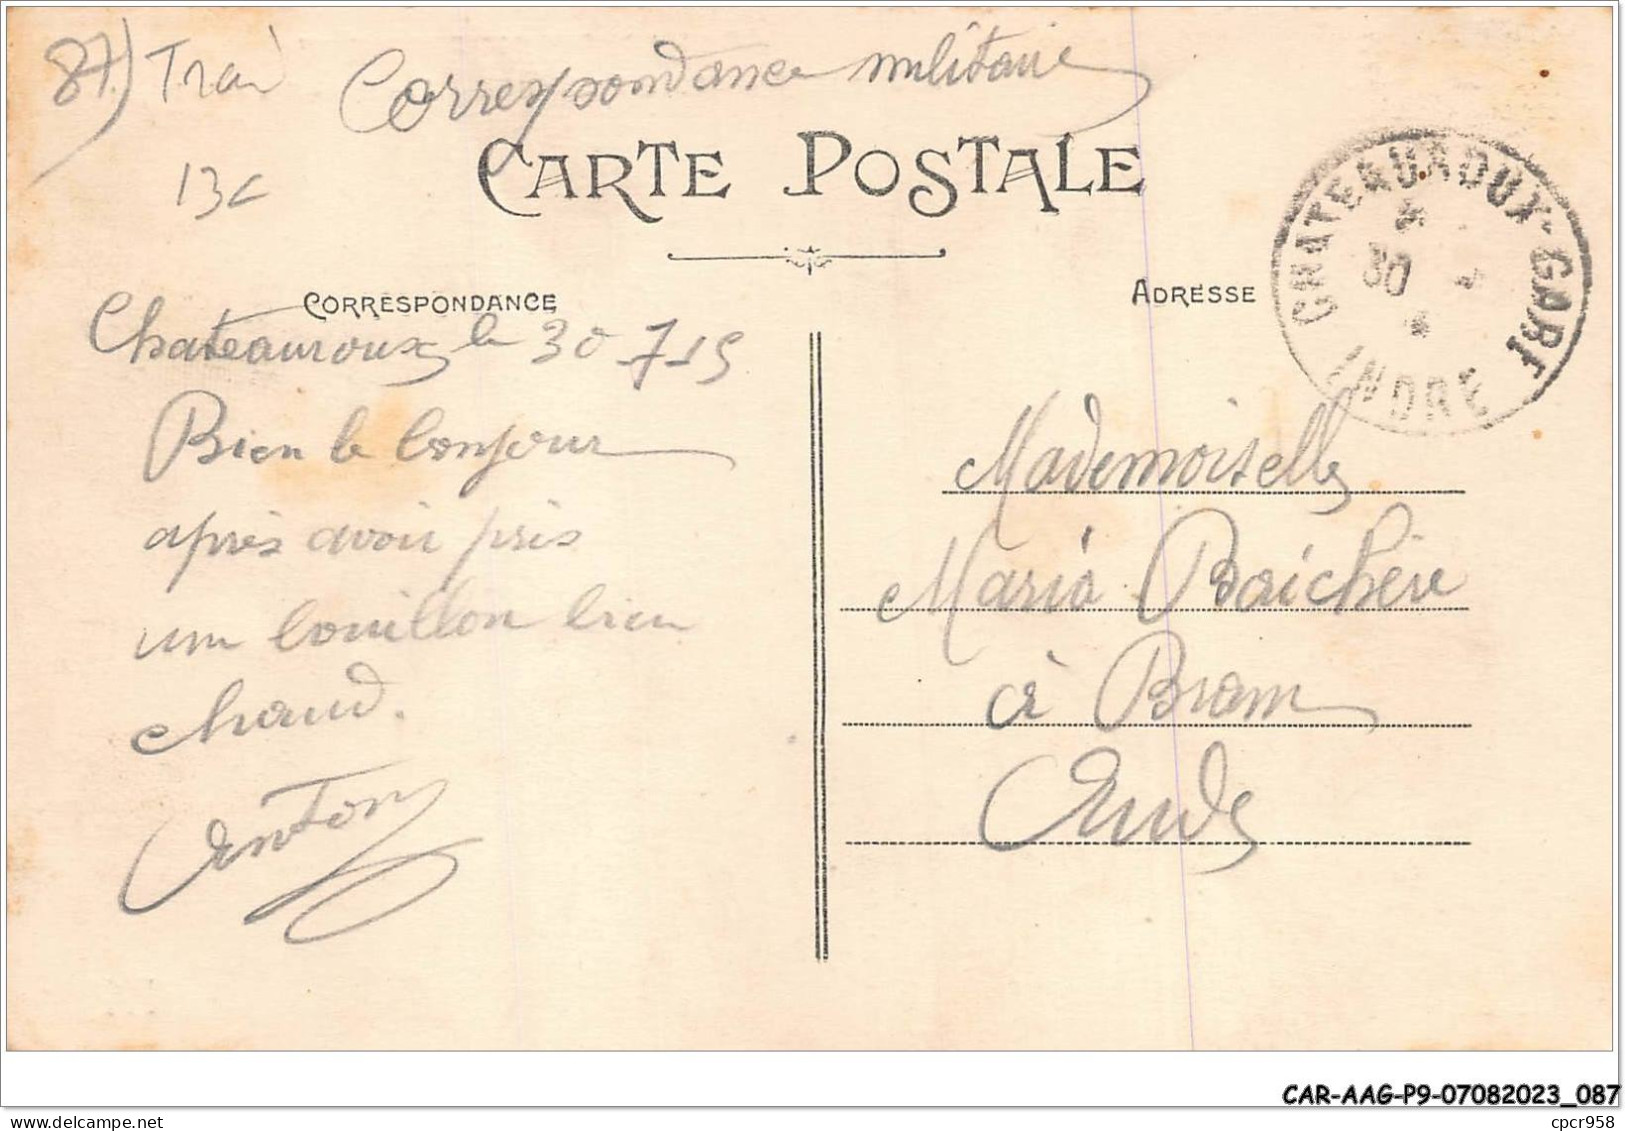 87) Train
13c
Correspondance militaire
CARTE POSTALE
CHATEAUROUX-GARE
30
INDRE
CORRESPONDANCE
ADRESSE
Chateauroux le 30 7 15
Bien le bonjour
après avoir pris
un bouillon bien
chaud.
Antony
Mademoiselle
Maria Boichère
à Bram
Aude
CAR-AAG-P9-07082023_087
cpcr958